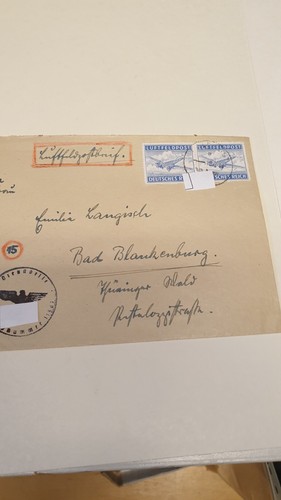 Luftfeldpostbrief.
LUFTFELDPOST LUFTFELDPOST
DEUTSCHES REICH
Emilie Langisch
Bad Blankenburg.
Thüringer Wald
Pestalozzistraße.
15
Dienststelle